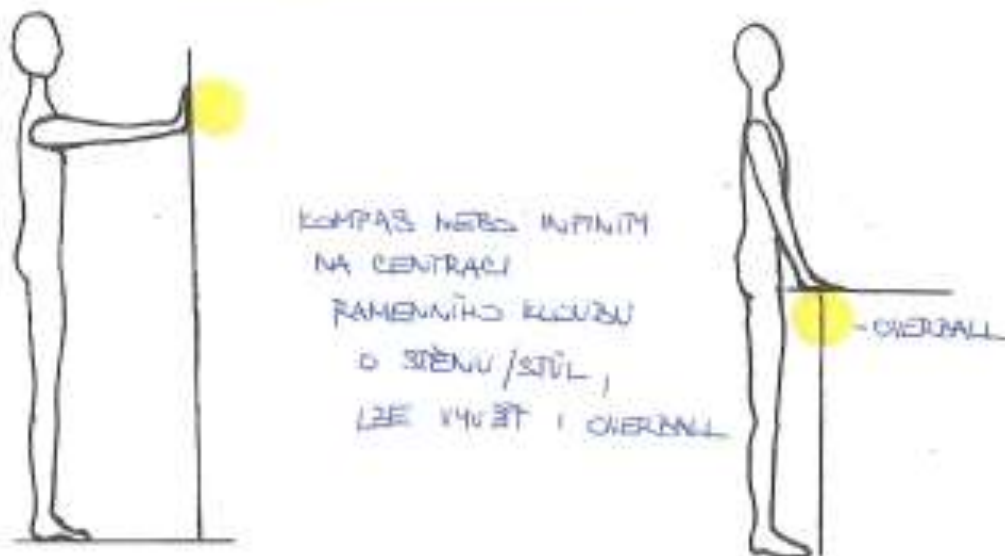 KOMPAS NEBO INFINITY
NA CENTRACI
RAMENNÍHO KLOUBU
O STĚNU/STŮL,
LZE VYUŽÍT I OVERBALL
- OVERBALL